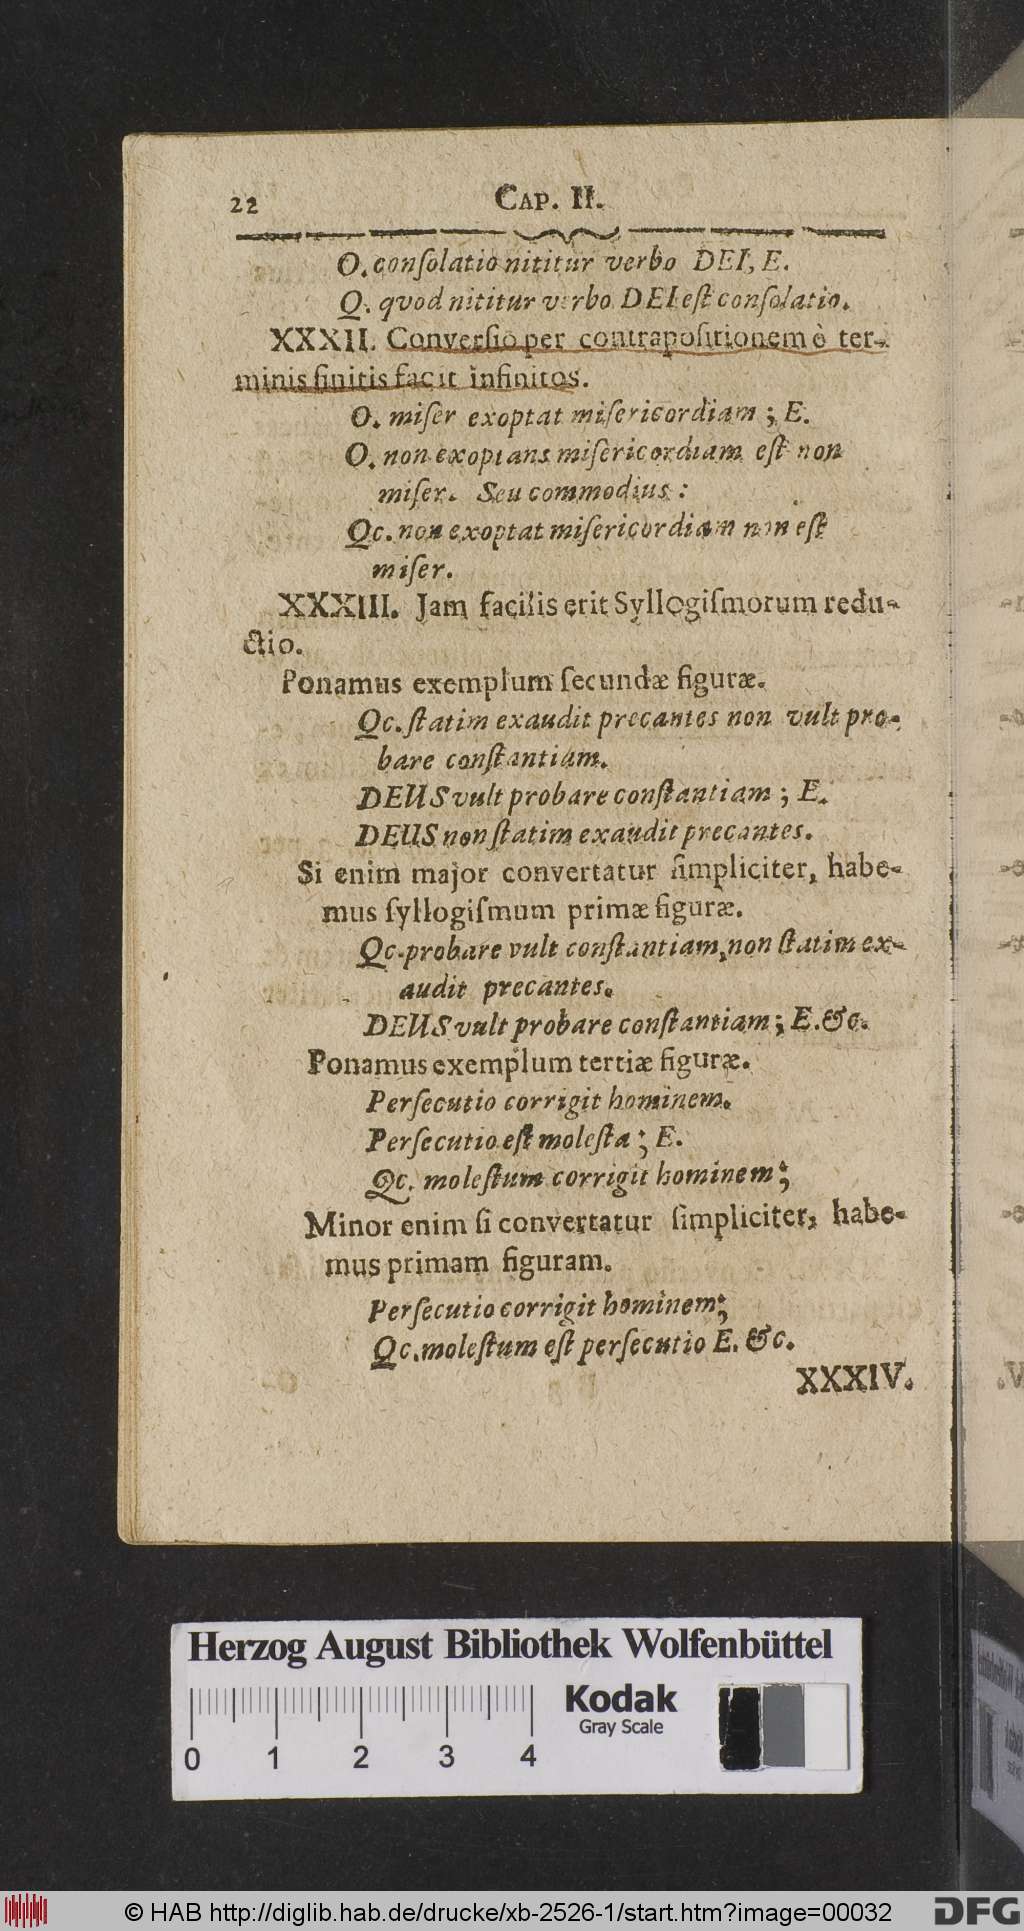 22 CAP. II.
O. conſolatio nititur verbo DEI, E.
Q. quod nititur verbo DEI eſt conſolatio.
XXXII. Converſio per contrapoſitionem è ter-
minis finitis facit infinitos.
O. miſer exoptat miſericordiam ; E.
O. non exoptans miſericordiam eſt non
miſer. Seu commodius :
Qc. non exoptat miſericordiam non eſt
miſer.
XXXIII. Jam facilis erit Syllogiſmorum redu-
ctio.
Ponamus exemplum ſecundæ figuræ.
Qc. ſtatim exaudit precantes non vult pro-
bare conſtantiam.
DEUS vult probare conſtantiam ; E.
DEUS non ſtatim exaudit precantes.
Si enim major convertatur ſimpliciter, habe-
mus ſyllogiſmum primæ figuræ.
Qc. probare vult conſtantiam, non ſtatim ex-
audit precantes.
DEUS vult probare conſtantiam ; E. &c.
Ponamus exemplum tertiæ figuræ.
Perſecutio corrigit hominem.
Perſecutio eſt moleſta ; E.
Qc. moleſtum corrigit hominem ;
Minor enim ſi convertatur ſimpliciter, habe-
mus primam figuram.
Perſecutio corrigit hominem ;
Qc. moleſtum eſt perſecutio E. &c.
XXXIV.
Herzog August Bibliothek Wolfenbüttel
Kodak
Gray Scale
0 1 2 3 4
© HAB http://diglib.hab.de/drucke/xb-2526-1/start.htm?image=00032
DFG